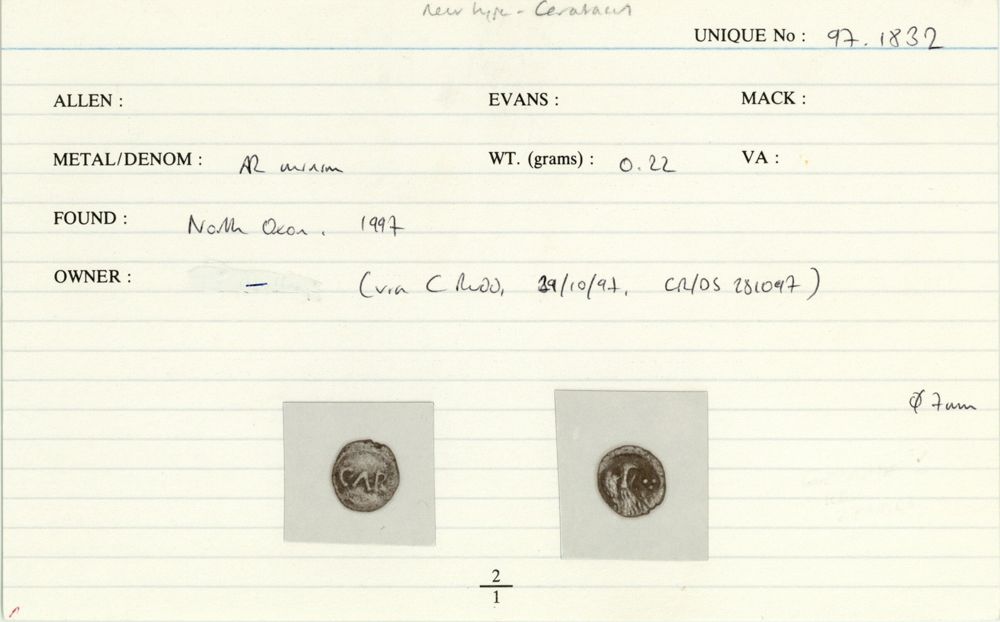 new type - Caratacus
UNIQUE No : 97.1832
ALLEN : EVANS : MACK :
METAL/DENOM : AR minim WT. (grams) : 0.22 VA :
FOUND : North Oxon. 1997
OWNER : — (via C Rudd, 29/10/97, CR/DS 281097)
Ø 7mm
CAR
2
1